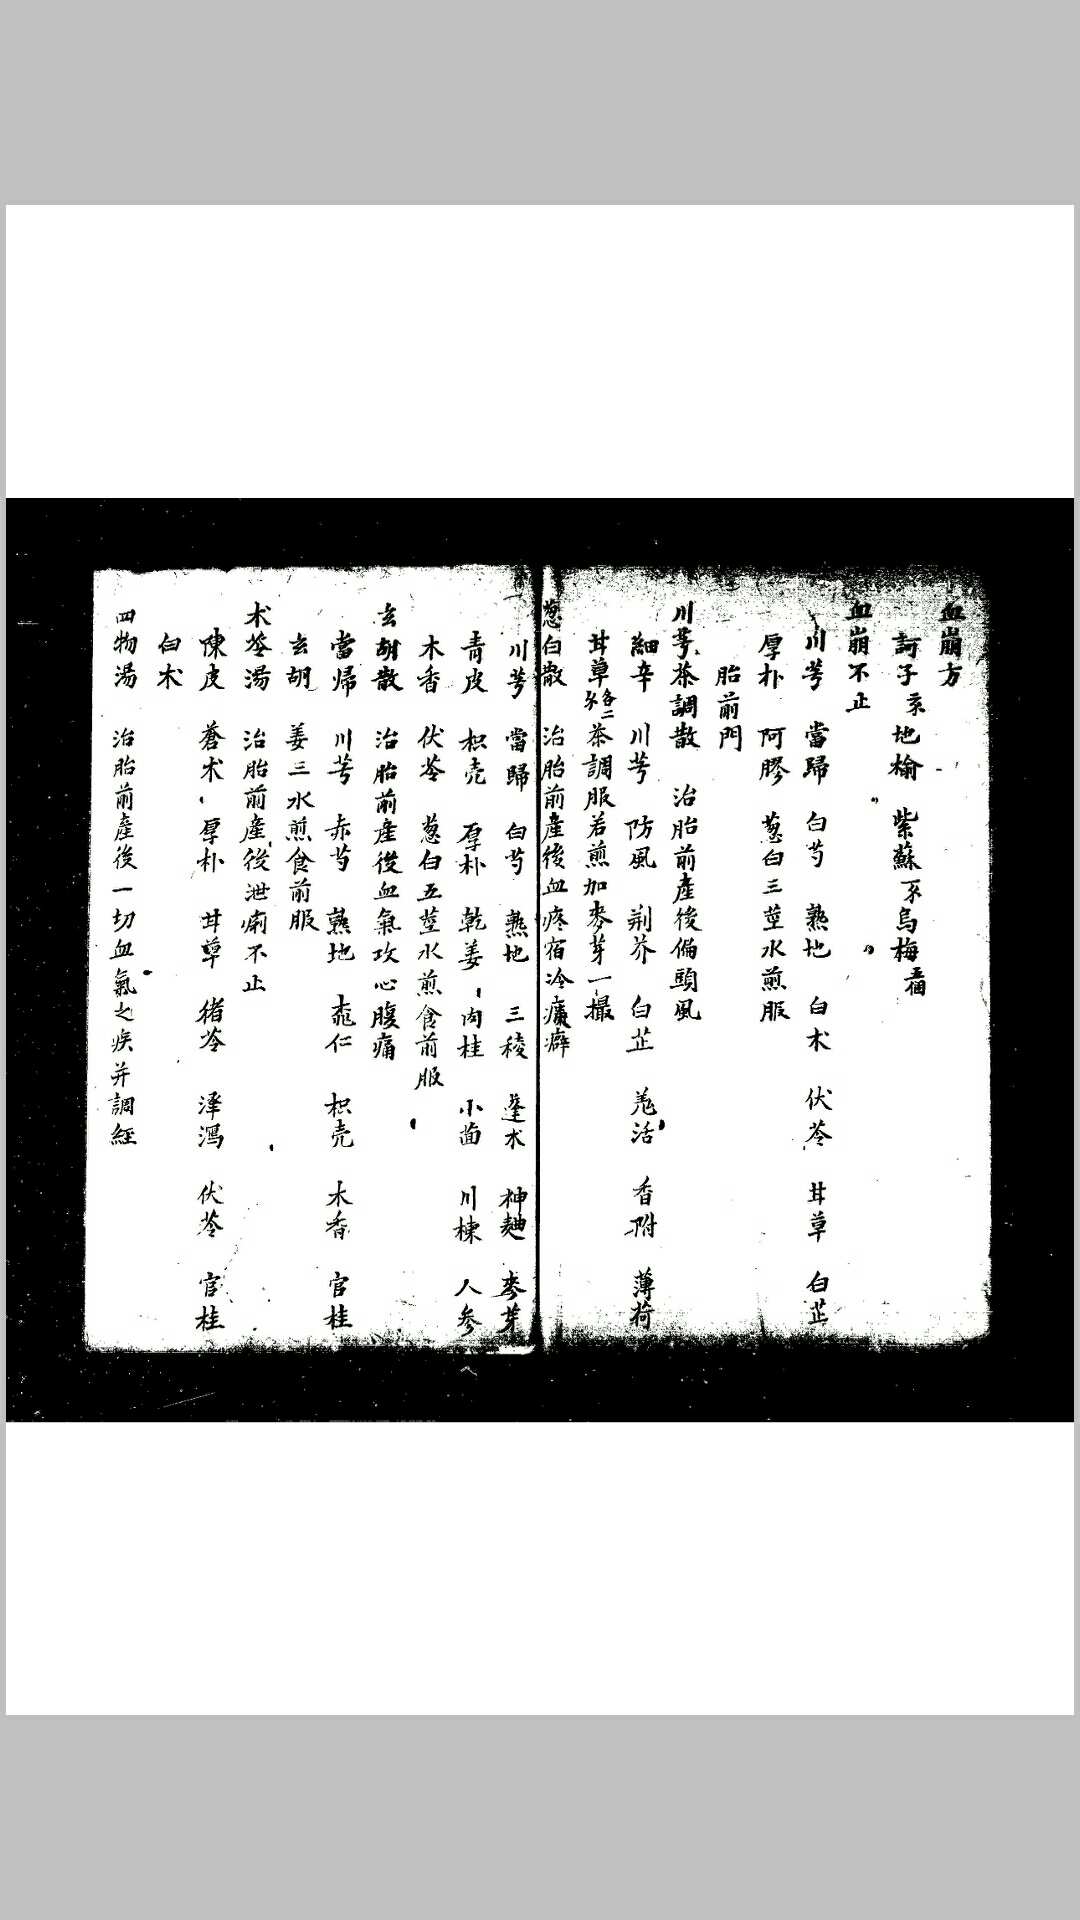 血崩方
訶子 地榆 紫蘇 烏梅五個
血崩不止
川芎 當歸 白芍 熟地 白术 伏苓 甘草 白芷
厚朴 阿膠 葱白三莖水煎服
胎前門
川芎茶調散 治胎前產後偏頭風
細辛 川芎 防風 荊芥 白芷 羌活 香附 薄荷
甘草各二 茶調服若煎加麥芽一撮
葱白散 治胎前產後血疼宿冷癖
川芎 當歸 白芍 熟地 三稜 蓬朮 神麯 麥芽
青皮 枳壳 厚朴 乾姜 肉桂 小茴 川楝 人参
木香 伏苓 葱白五莖水煎食前服
玄胡散 治胎前產後血氣攻心腹痛
當帰 川芎 赤芍 熟地 桃仁 枳壳 木香 官桂
玄胡 姜三水煎食前服
术苓湯 治胎前產後泄痢不止
陳皮 蒼术 厚朴 甘草 猪苓 澤瀉 伏苓 官桂
白术
四物湯 治胎前產後一切血氣之疾并調經